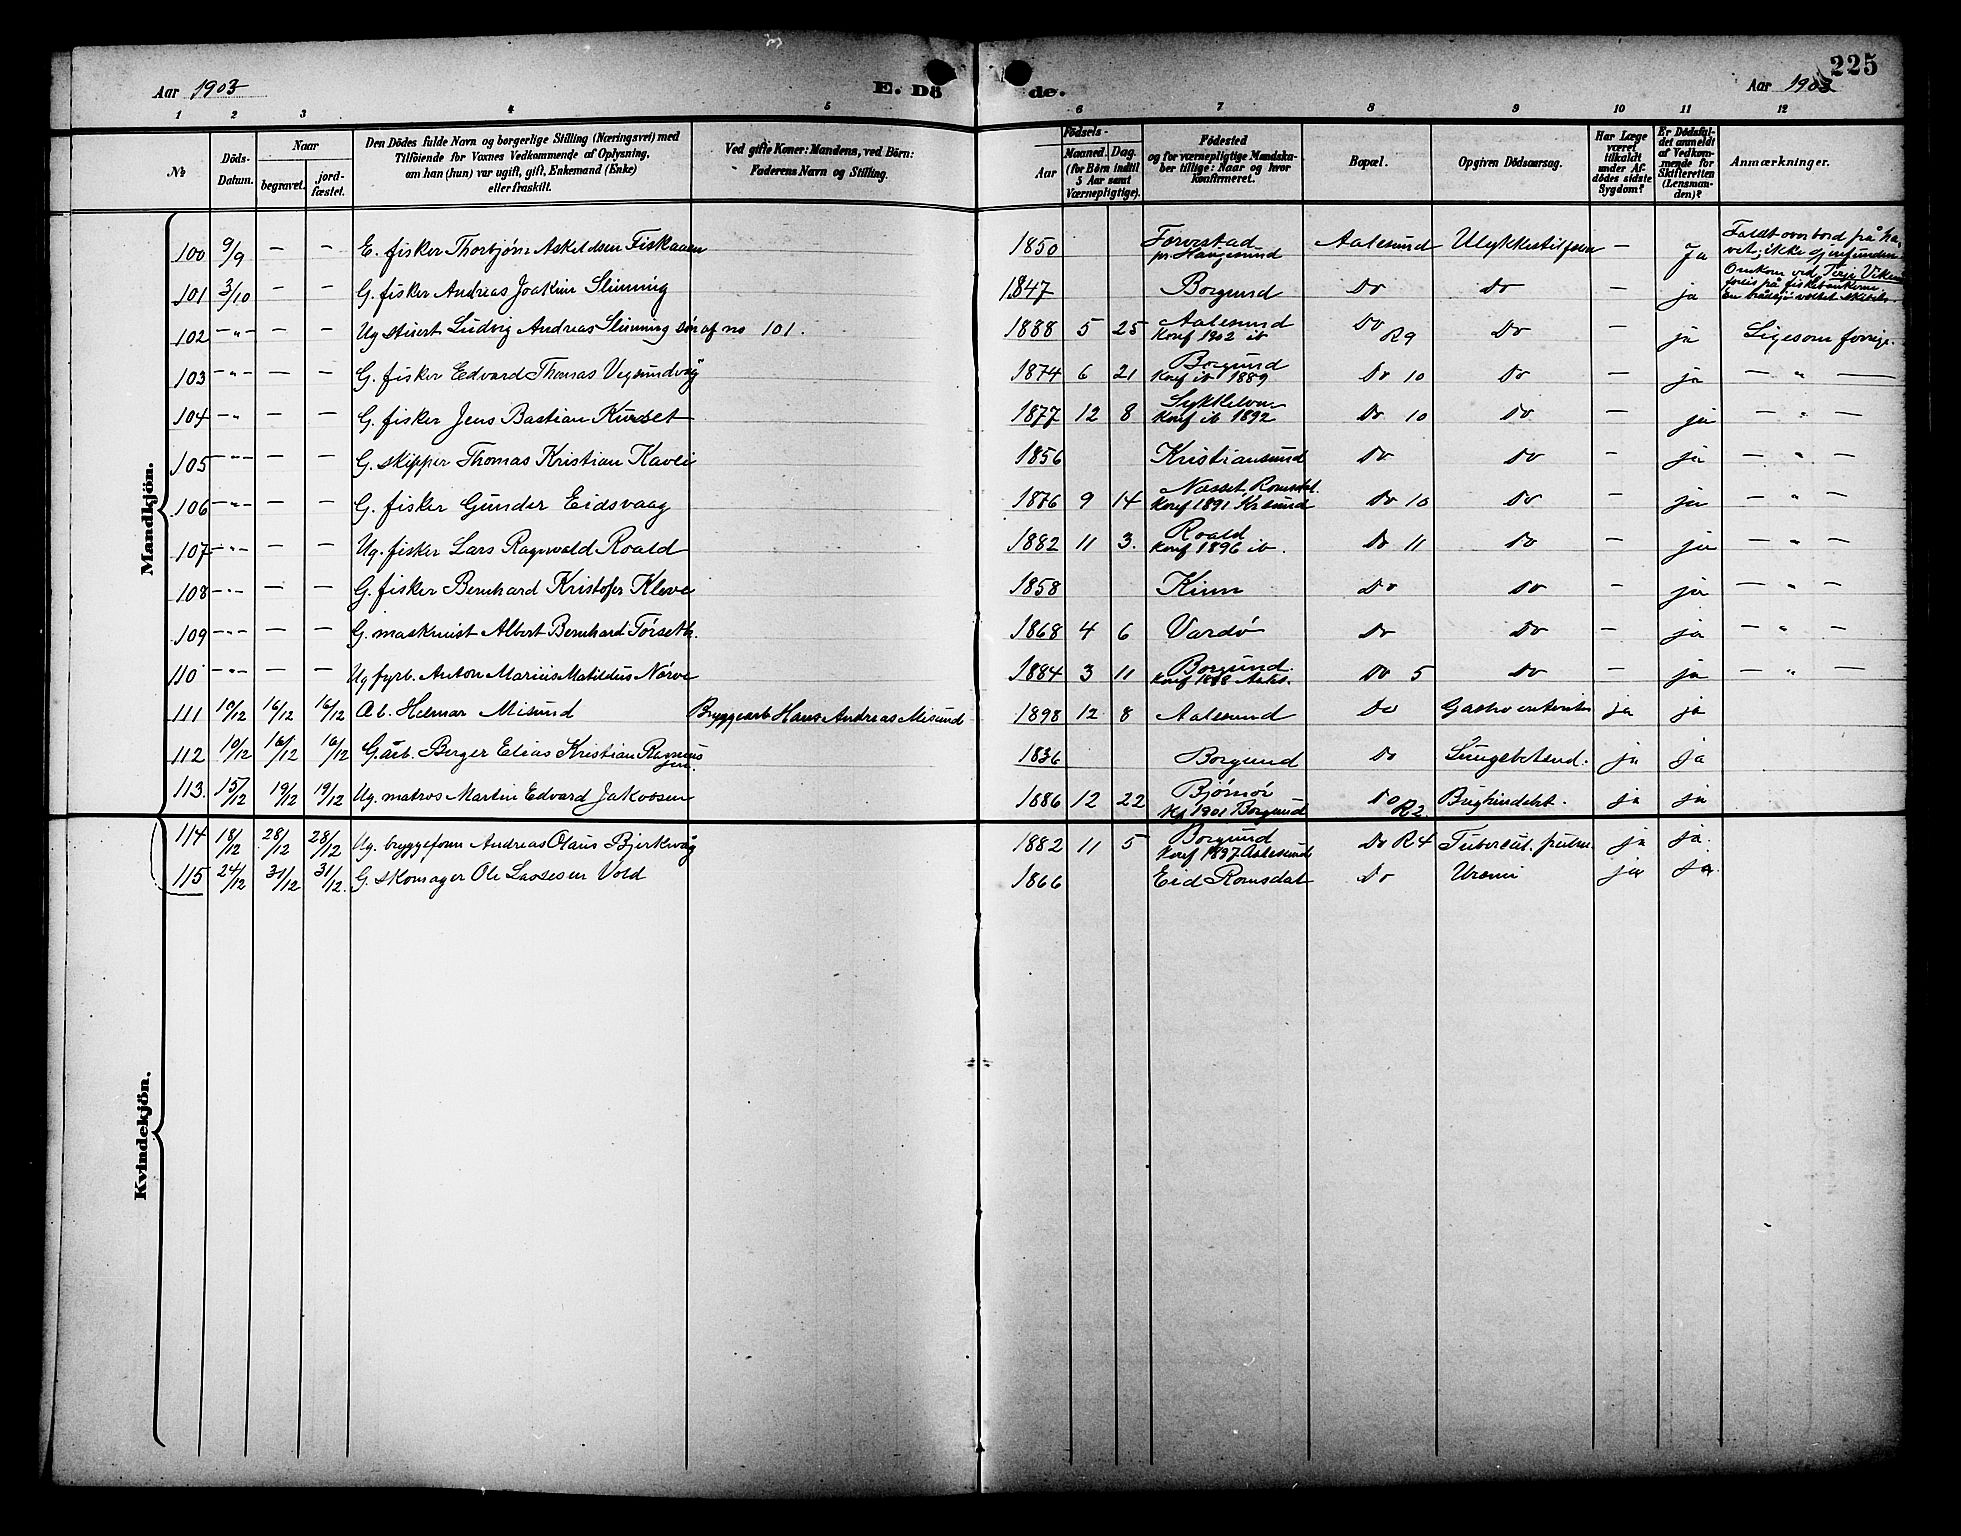 225
Aar 1903 E. Dö de. Aar 1903
1 2 3 4 5 6 7 8 9 10 11 12
№
Döds-Datum.
Naar
begravet.
jordfæstet.
Den Dödes fulde Navn og borgerlige Stilling (Næringsvei) med
Tilföiende for Voxnes Vedkommende af Oplysning,
om han (hun) var ugift, gift, Enkemand (Enke)
eller fraskilt.
Ved gifte Koner: Mandens, ved Börn:
Faderens Navn og Stilling.
Födsels-
Aar
Maaned. Dag.
(for Börn indtil
5 Aar samt
Værnepligtige).
Födested
og for værnepligtige Mandska-
ber tillige: Naar og hvor
konfirmeret.
Bopæl.
Opgiven Dödsaarsag.
Har Læge
været
tilkaldt
under Af-
dödes sidste
Sygdom?
Er Dödsfal-
det anmeldt
af Vedkom-
mende for
Skifteretten
(Lensman-
den)?
Anmærkninger.
Mandkjön.
100 9/9 — — E. fisker Thorbjørn Askeldsen Fiskaaen 1850 Torvestad pr. Haugesund Aalesund Ulykkestilfælde — Ja Faldt overbord på ha-vet; ikke gjenfunden
101 3/10 — — G. fisker Andreas Joakim Slinning 1847 Borgund Do Do — ja Omkom ved Terje Vikens forlis på fiskebankerne. En brådsjø væltet skibet.
102 -"- — — Ug stuert Ludvig Andreas Slinning søn af no 101. 1888 5 25 Aalesund Konf 1902 ib Do R9 Do — ja Ligesom forrige.
103 -"- — — G. fisker Edvard Thomas Vegsundvåg 1874 6 21 Borgund Konf ib 1889 Do 10 Do — ja — " —
104 -"- — — G. fisker Jens Bastian Kurset 1877 12 8 Sykkelven Konf ib 1892 Do 10 Do — ja — " —
105 -"- — — G. skipper Thomas Kristian Kavli 1856 Kristiansund Do Do — ja — " —
106 -"- — — G. fisker Gunder Eidsvaag 1876 9 14 Nesset, Romsdal. Konf 1891 Krsund Do 10 Do — ja — " —
107 -"- — — Ug. fisker Lars Ragnvald Roald 1882 11 3. Roald Konf 1896 ib. Do 11 Do — ja — " —
108 -"- — — G. fisker Bernhard Kristofer Kleve 1858 Kinn Do Do — ja — " —
109 -"- — — G. maskinist Albert Bernhard Tørseth. 1868 4 6 Vardø Do Do — ja — " —
110 -"- — — Ug fyrb. Anton Marius Matildus Nørve 1884 3 11 Borgund. Do 5 Do — ja — " —
111 10/12 16/12 16/12 Æb. Helmar Misund Bryggearb Hans Andreas Misund 1898 12 8 Aalesund Do Gastro enteritis ja ja
112 10/12 16/12 16/12 G. arb. Berger Elias Kristian 1836 Borgund Do Lungebetænd. ja ja
113. 15/12 19/12 19/12 Ug. matros Martin Edvard Jakobsen 1886 12 22 Bjørnør Kf 1901 Borgund Do R2. Brighindebet. ja ja
Kvindekjön.
114 18/12 28/12 28/12 Ug. bryggeform Andreas Olaus Bjerkvåg 1882 11 5 Borgund Konf 1897 Aalesund Do R4 Tubercul. pulm. ja ja.
115 24/12 31/12 31/12. G. skomager Ole Lassesen Vold 1866 Eid Romsdal Do Uræmi ja ja.